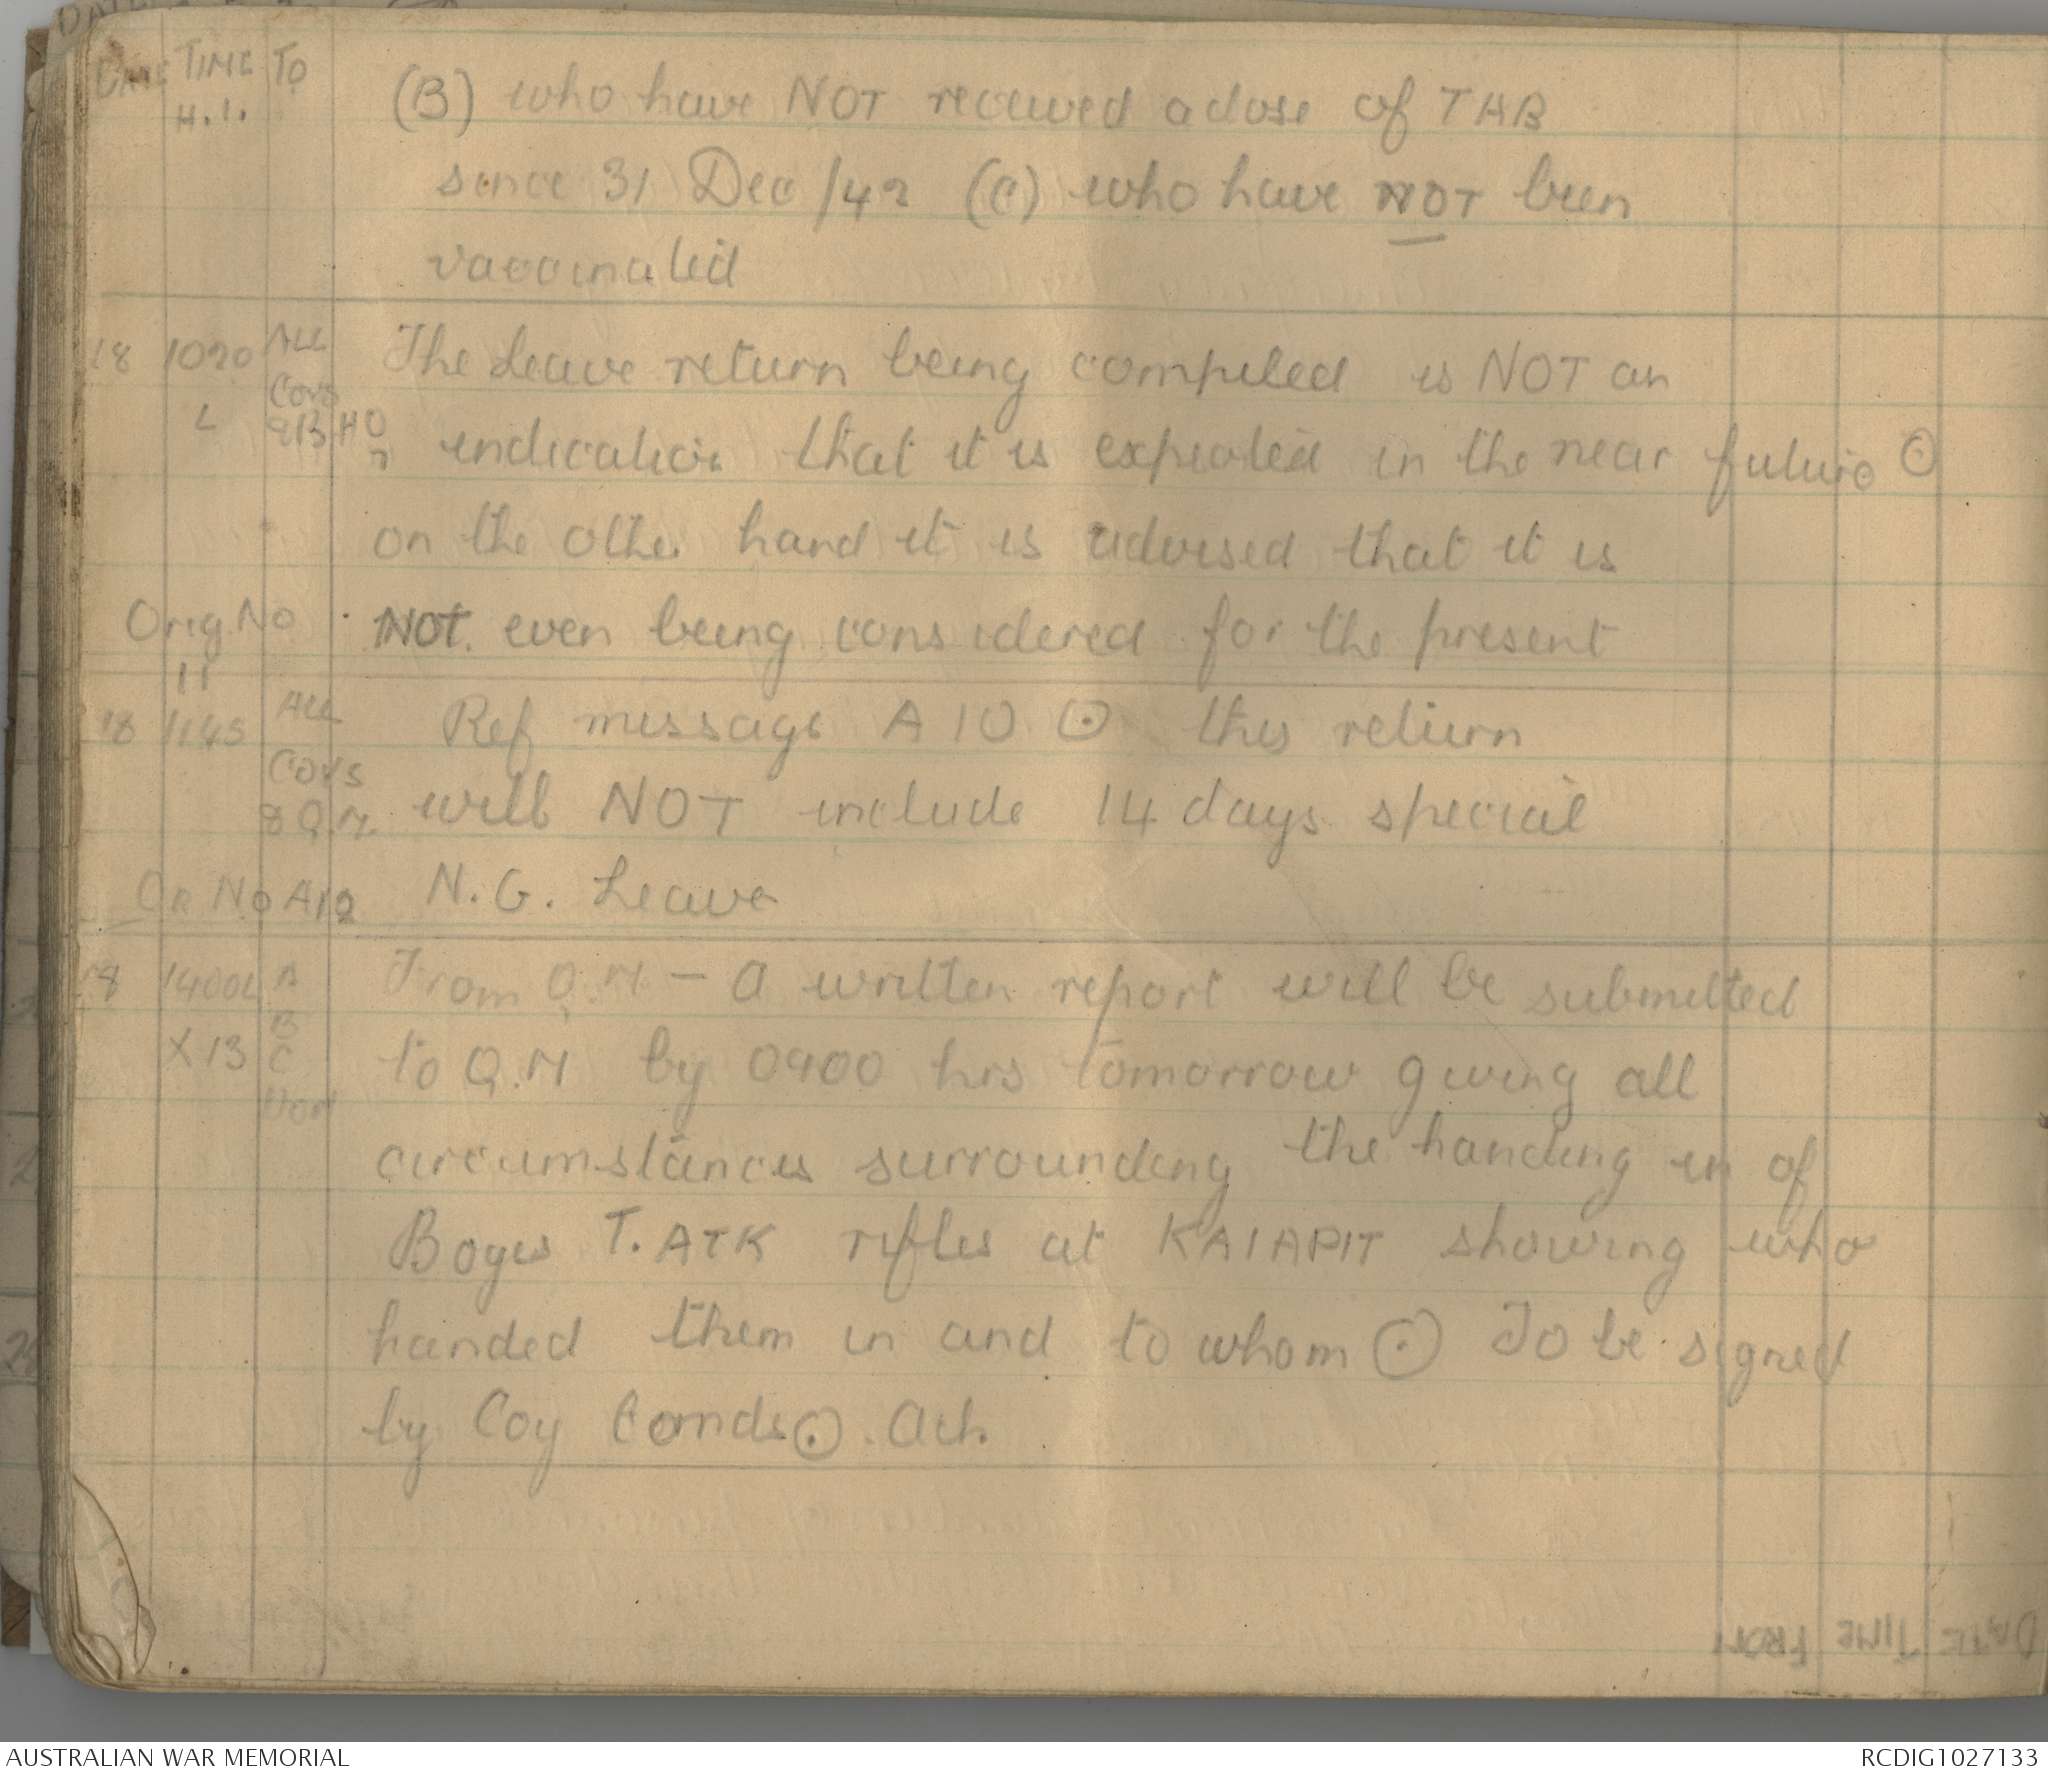 DATE TIME TO
H.I.
(B) who have NOT received a dose of TAB
since 31 Dec/42 (C) who have NOT been
vaccinated
18 1020 ALL The Leave return being compiled is NOT an
L Coys & B HQ indication that it is expected in the near future ⊙
on the other hand it is advised that it is
Orig No NOT. even being considered for the present
11
18 1145 ALL Ref message A10 ⊙ this return
Coys
& Q.M. will NOT include 14 days special
OR NO A12 N.G. Leave
18 1400L A From Q.M - A written report will be submitted
X13 B
C to Q.M by 0900 hrs tomorrow giving all
circumstances surrounding the handing in of
Boyes T. ATK rifles at KAIAPIT showing who
handed them in and to whom ⊙ To be signed
by Coy Comds ⊙. Ack.
DATE TIME FROM
AUSTRALIAN WAR MEMORIAL
RCDIG1027133